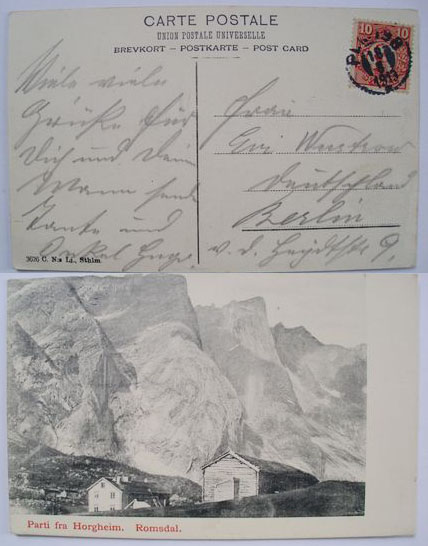 CARTE POSTALE
UNION POSTALE UNIVERSELLE
BREVKORT – POSTKARTE – POST CARD
10 10
Viele viele
Grüße für
Dich und Dein
Mann sendet
Tante und
Onkel Hugo.
Frau
Evi Wustrow
Deutschland
Berlin
v. d. Heydtstr 9.
3626 C. N:s Lj., Sthlm.
Parti fra Horgheim. Romsdal.